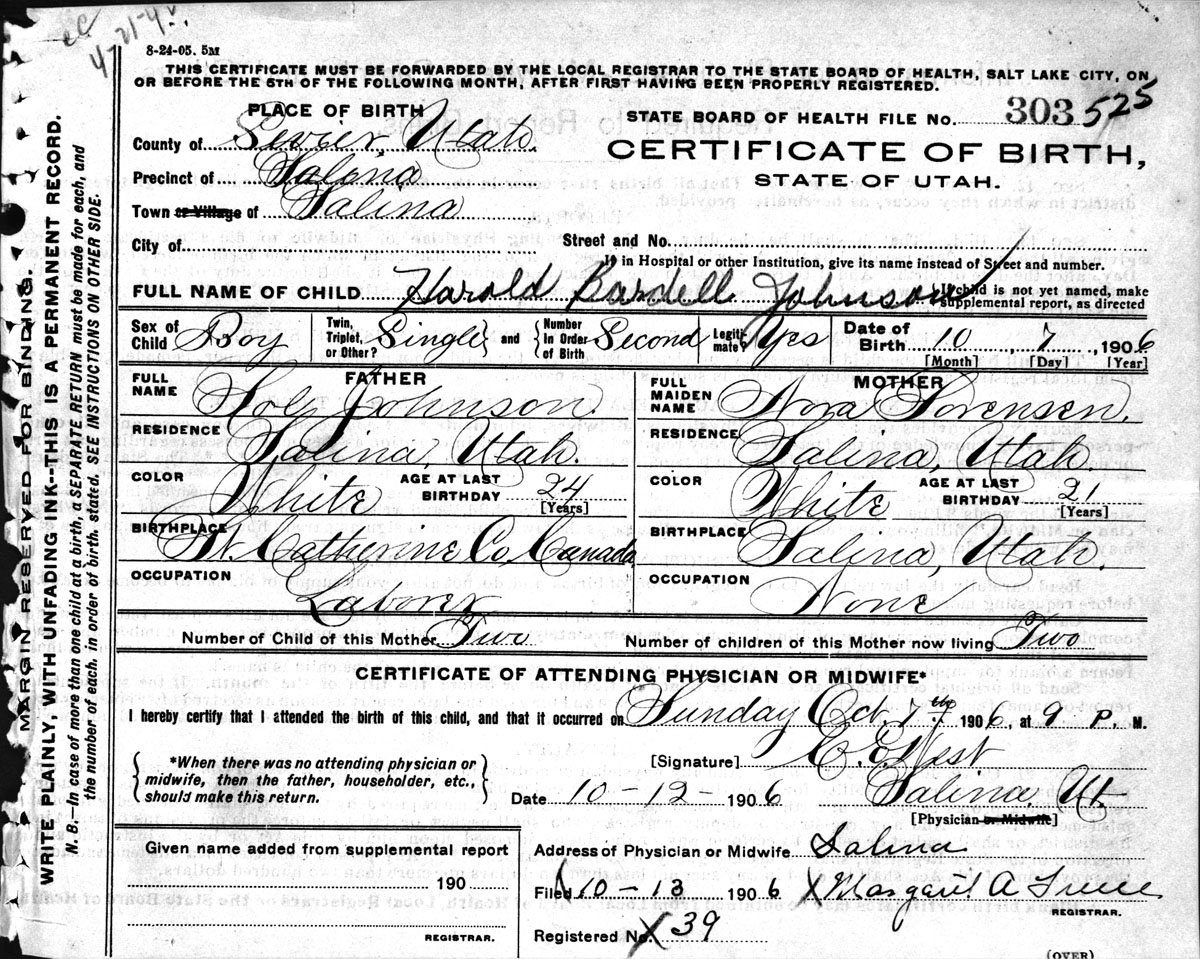 4-21-4
8-24-05. 5M
THIS CERTIFICATE MUST BE FORWARDED BY THE LOCAL REGISTRAR TO THE STATE BOARD OF HEALTH, SALT LAKE CITY, ON
OR BEFORE THE 5TH OF THE FOLLOWING MONTH, AFTER FIRST HAVING BEEN PROPERLY REGISTERED.
PLACE OF BIRTH
STATE BOARD OF HEALTH FILE NO. 303 525
County of Sevier, Utah.
CERTIFICATE OF BIRTH,
Precinct of Salina
STATE OF UTAH.
Town or Village of Salina
City of
Street and No.
If in Hospital or other Institution, give its name instead of Street and number.
FULL NAME OF CHILD Harold Bardell Johnson
If child is not yet named, make
supplemental report, as directed
Sex of Child Boy
Twin, Triplet, or Other? Single and Number in Order of Birth Second
Legitimate? Yes
Date of Birth 10 7 1906
[Month] [Day] [Year]
FATHER
FULL NAME Johnson.
RESIDENCE Salina, Utah.
COLOR White AGE AT LAST BIRTHDAY 24 [Years]
BIRTHPLACE St. Catherine Co. Canada
OCCUPATION Laborer
MOTHER
FULL MAIDEN NAME Nora Sorensen.
RESIDENCE Salina, Utah.
COLOR White AGE AT LAST BIRTHDAY 21 [Years]
BIRTHPLACE Salina, Utah.
OCCUPATION None
Number of Child of this Mother Two
Number of children of this Mother now living Two
CERTIFICATE OF ATTENDING PHYSICIAN OR MIDWIFE*
I hereby certify that I attended the birth of this child, and that it occurred on Sunday Oct. 7th 1906, at 9 P. M.
*When there was no attending physician or
midwife, then the father, householder, etc.,
should make this return.
[Signature] West
Date 10-12 1906 Salina, Ut.
[Physician or Midwife]
Given name added from supplemental report
190
REGISTRAR.
Address of Physician or Midwife Salina
Filed 10-13 1906 Margaret A
REGISTRAR.
Registered No. 39
(OVER)
MARGIN RESERVED FOR BINDING.
WRITE PLAINLY, WITH UNFADING INK—THIS IS A PERMANENT RECORD.
N. B.—In case of more than one child at a birth, a SEPARATE RETURN must be made for each, and
the number of each, in order of birth, stated. SEE INSTRUCTIONS ON OTHER SIDE.